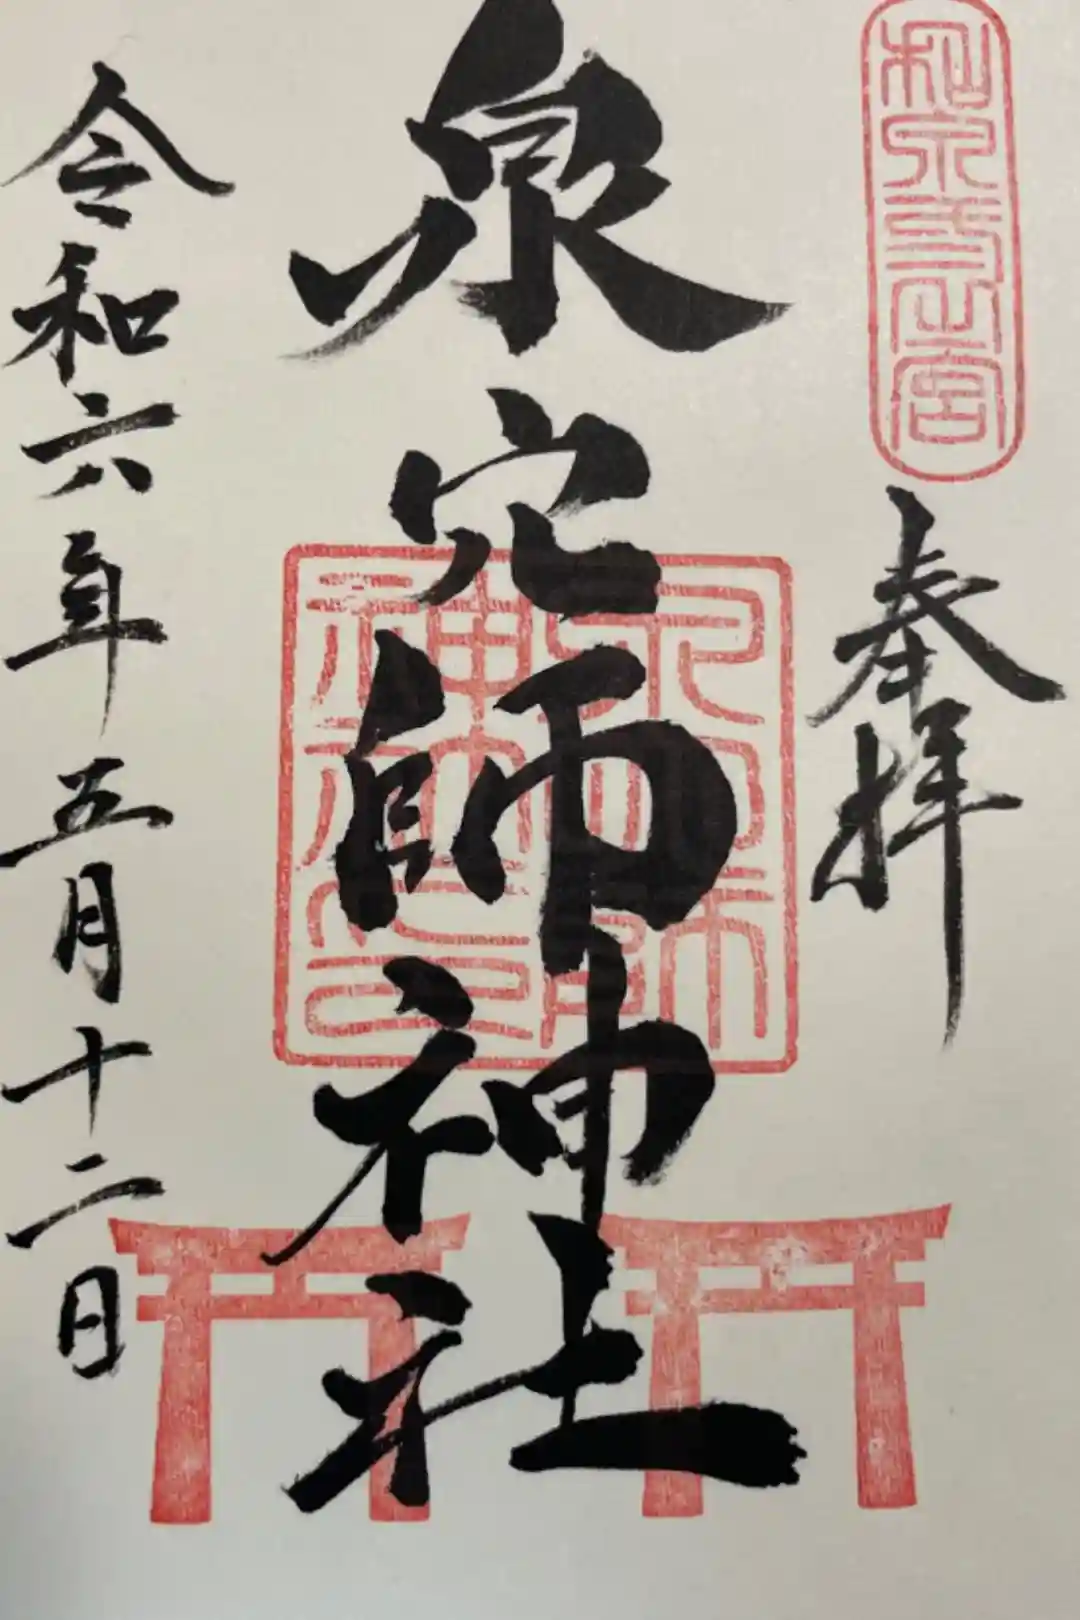 和泉五社二宮
奉拝
泉穴師神社
泉穴師神社之印
令和六年五月十二日